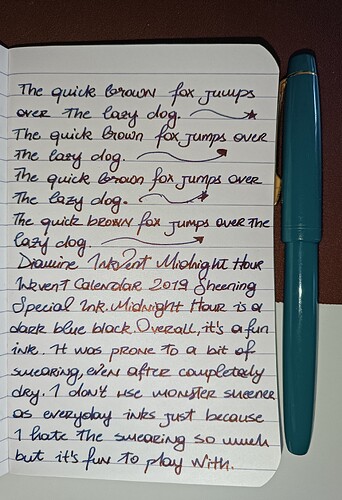 The quick brown fox jumps
over The lazy dog.
The quick brown fox jumps over
The lazy dog.
The quick brown fox jumps over
The lazy dog.
The quick brown fox jumps over the
lazy dog.
Diamine Inkvent Midnight Hour
Inkvent Calendar 2019 Sheening
Special Ink. Midnight Hour is a
dark blue black. Overall, it's a fun
ink. It was prone to a bit of
smearing, even after completely
dry. I don't use monster sheener
as everyday inks just because
I hate the smearing so much
but it's fun to play with.